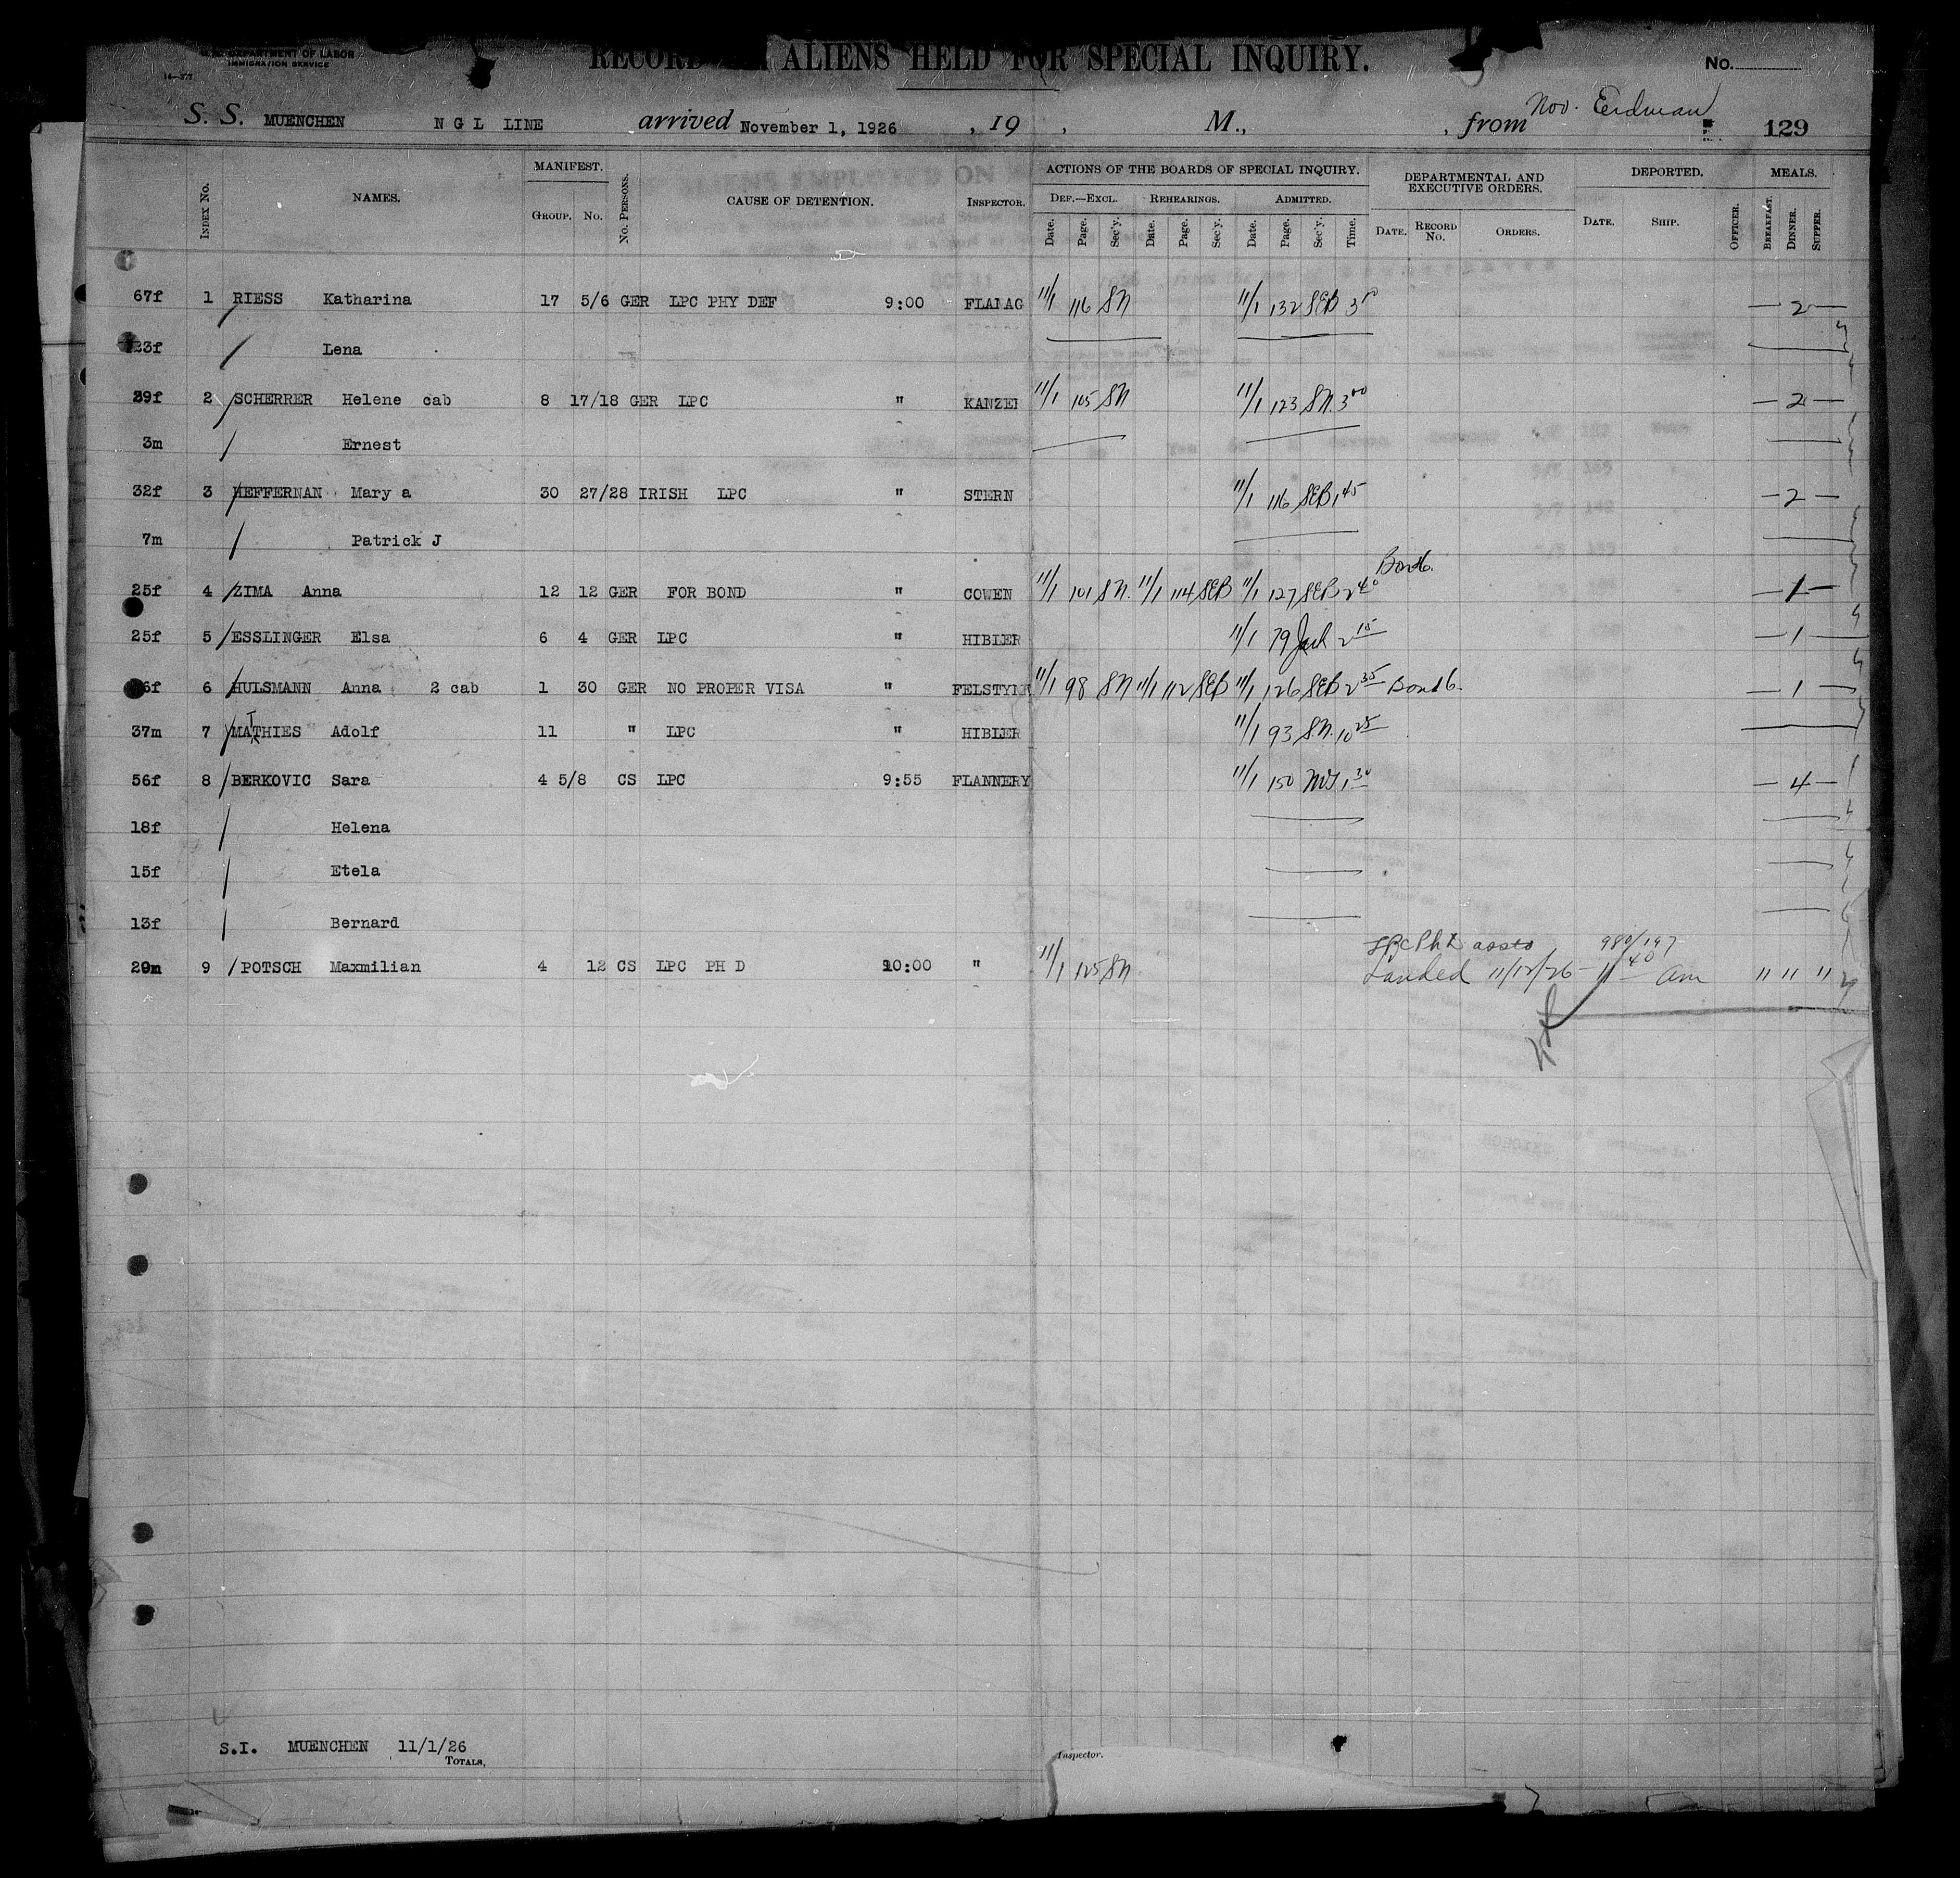 DEPARTMENT OF LABOR
IMMIGRATION SERVICE
RECORD ALIENS HELD FOR SPECIAL INQUIRY.
No.
S. S. MUENCHEN N G L LINE arrived November 1, 1926 , 19 , M., , from Nov. Erdman 129
INDEX No. NAMES. MANIFEST. GROUP. No. No. PERSONS. CAUSE OF DETENTION. INSPECTOR. ACTIONS OF THE BOARDS OF SPECIAL INQUIRY. DEPARTMENTAL AND EXECUTIVE ORDERS. DEPORTED. MEALS.
DEF.—EXCL. REHEARINGS. ADMITTED.
Date. Page. Sec'y. Date. Page. Sec'y. Date. Page. Sec'y. Time. DATE. RECORD No. ORDERS. DATE. SHIP. OFFICER. BREAKFAST. DINNER. SUPPER.
67f 1 RIESS Katharina 17 5/6 GER LPC PHY DEF 9:00 FLANAG 11/1 116 SN 11/1 132 SEB 3 — 2 —
23f Lena
39f 2 SCHERRER Helene cab 8 17/18 GER LPC " KANZEI 11/1 105 SN 11/1 123 SN. 3 00 — 2 —
3m Ernest
32f 3 HEFFERNAN Mary a 30 27/28 IRISH LPC " STERN 11/1 116 SEB 1 45 — 2 —
7m Patrick J
25f 4 ZIMA Anna 12 12 GER FOR BOND " COWEN 11/1 101 SN. 11/1 114 SEB 11/1 127 SEB 2 40 Bond 6. — 1 —
25f 5 ESSLINGER Elsa 6 4 GER LPC " HIBLER 11/1 79 2 15 — 1 —
6f 6 HULSMANN Anna 2 cab 1 30 GER NO PROPER VISA " FELSTYN 11/1 98 SN 11/1 112 SEB 11/1 126 SEB 2 35 Bond 6. — 1 —
37m 7 MATHIES Adolf 11 " LPC " HIBLER 11/1 93 S.N. 10 25
56f 8 BERKOVIC Sara 4 5/8 CS LPC 9:55 FLANNERY 11/1 150 1 30 — 4 —
18f Helena
15f Etela
13f Bernard
29m 9 POTSCH Maxmilian 4 12 CS LPC PH D 10:00 " 11/1 125 SN
980/197
Landed 11/12/26 — 11 40 am " " "
S.I. MUENCHEN 11/1/26
TOTALS,
Inspector.